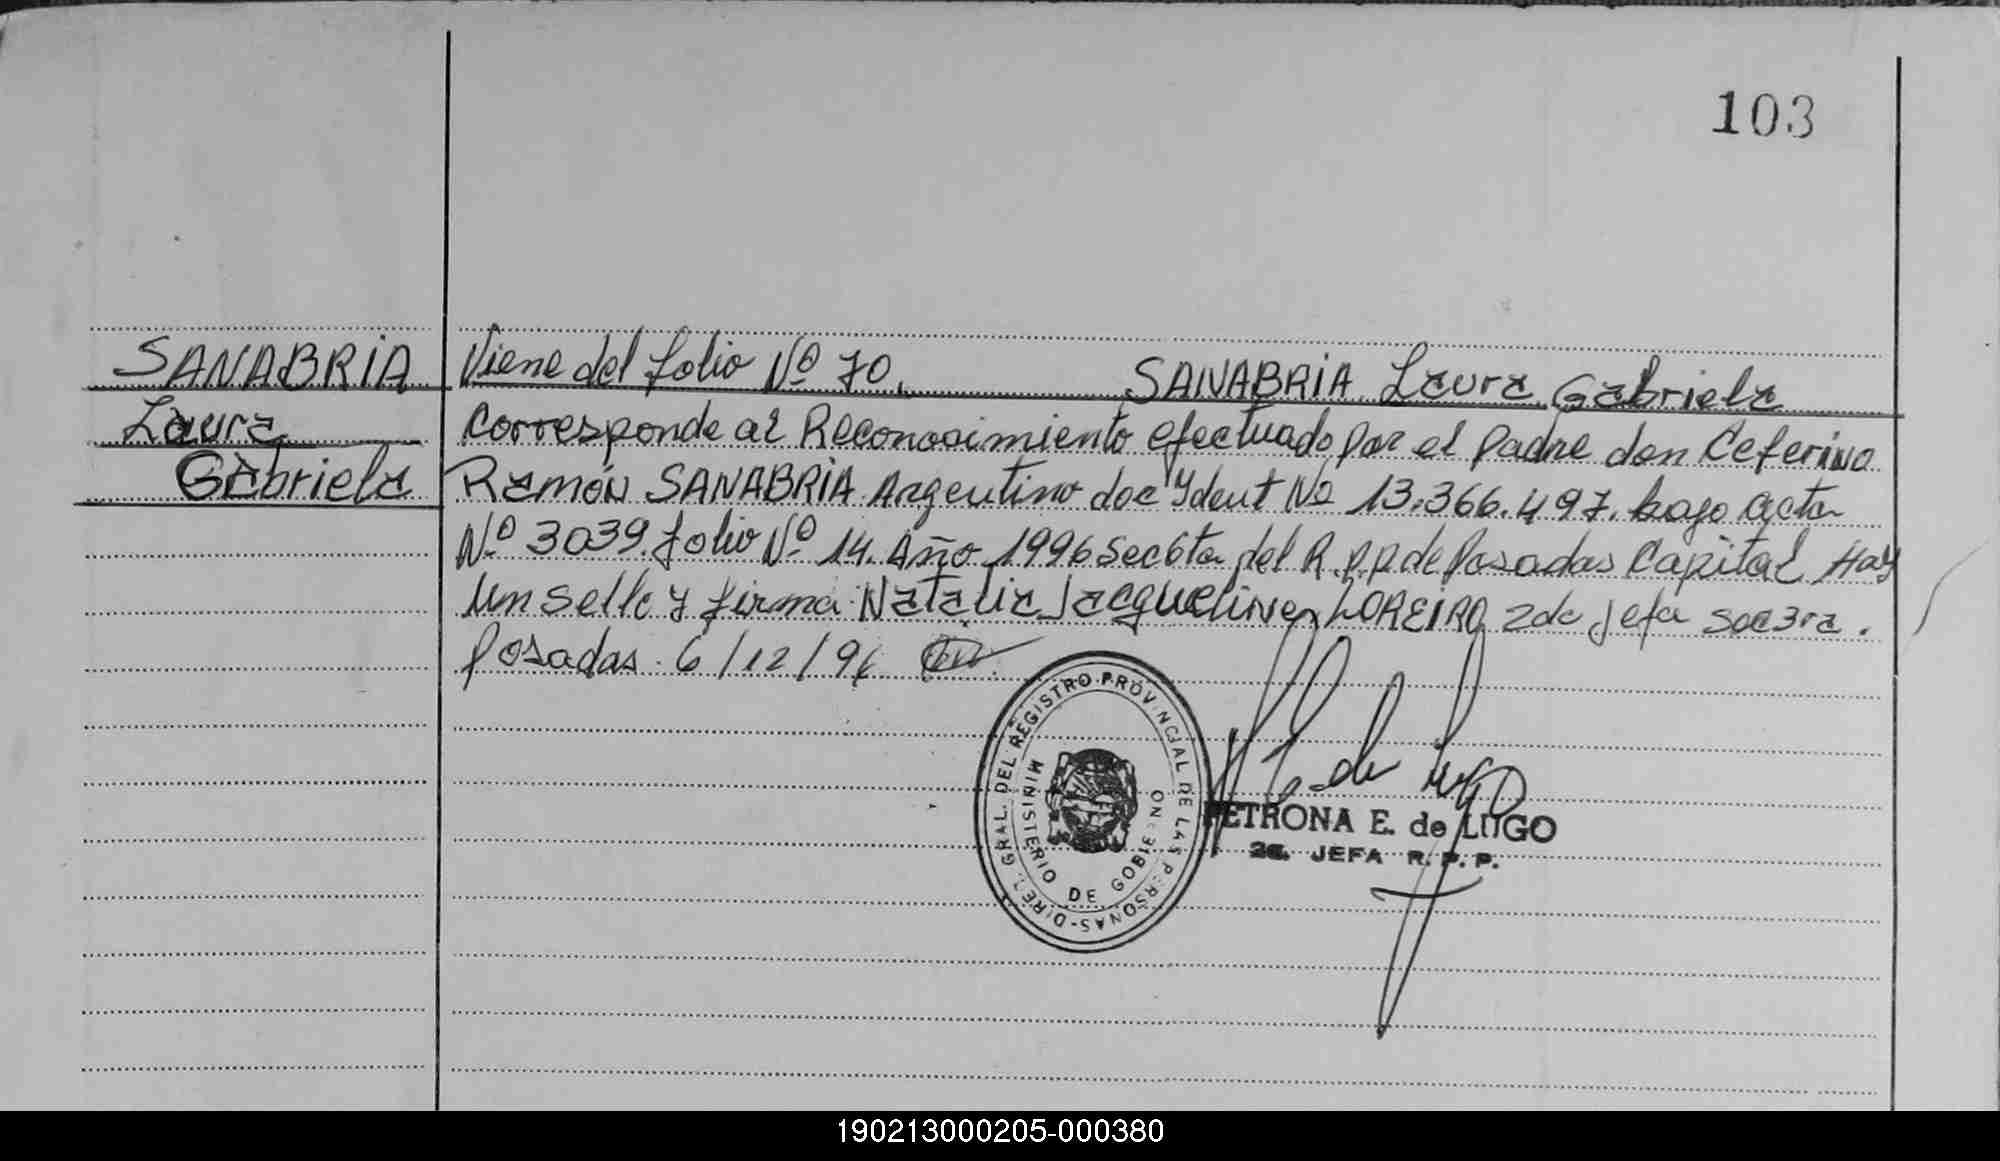 103
SANABRIA
Laura
Gabriela
Viene del folio Nº 70. SANABRIA Laura Gabriela
Corresponde al Reconocimiento efectuado por el padre don Ceferino
Ramón SANABRIA Argentino doc Ydent Nº 13.366.497. bajo acta
Nº 3039. folio Nº 14. Año 1996 Sec 6ta del R.P.P de Posadas Capital Hay
Un Sello y firma Natalia Jacqueline LOREIRO 2da Jefa Sec 3ra.
Posadas. 6/12/96
DIREC. GRAL. DEL REGISTRO PROVINCIAL DE LAS PERSONAS-
MINISTERIO DE GOBIERNO
P E de Lugo
PETRONA E. de LUGO
2a. JEFA R. P. P.
190213000205-000380